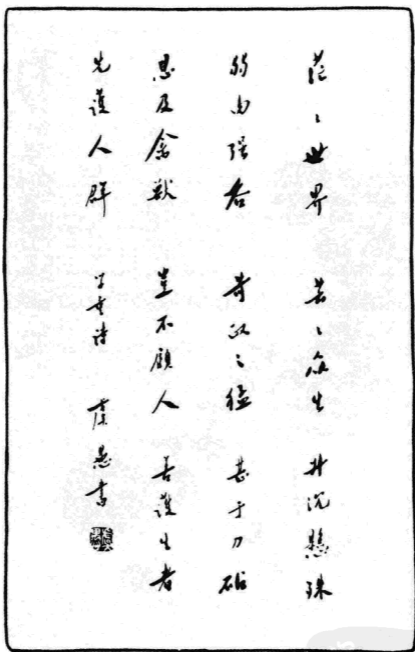 茫々世界 芸々眾生 升沉懸殊
弱肉强吞 苛政之猛 甚于刀砧
恩及禽獸 豈不顧人 善護生者
先護人群 詩 虞愚書